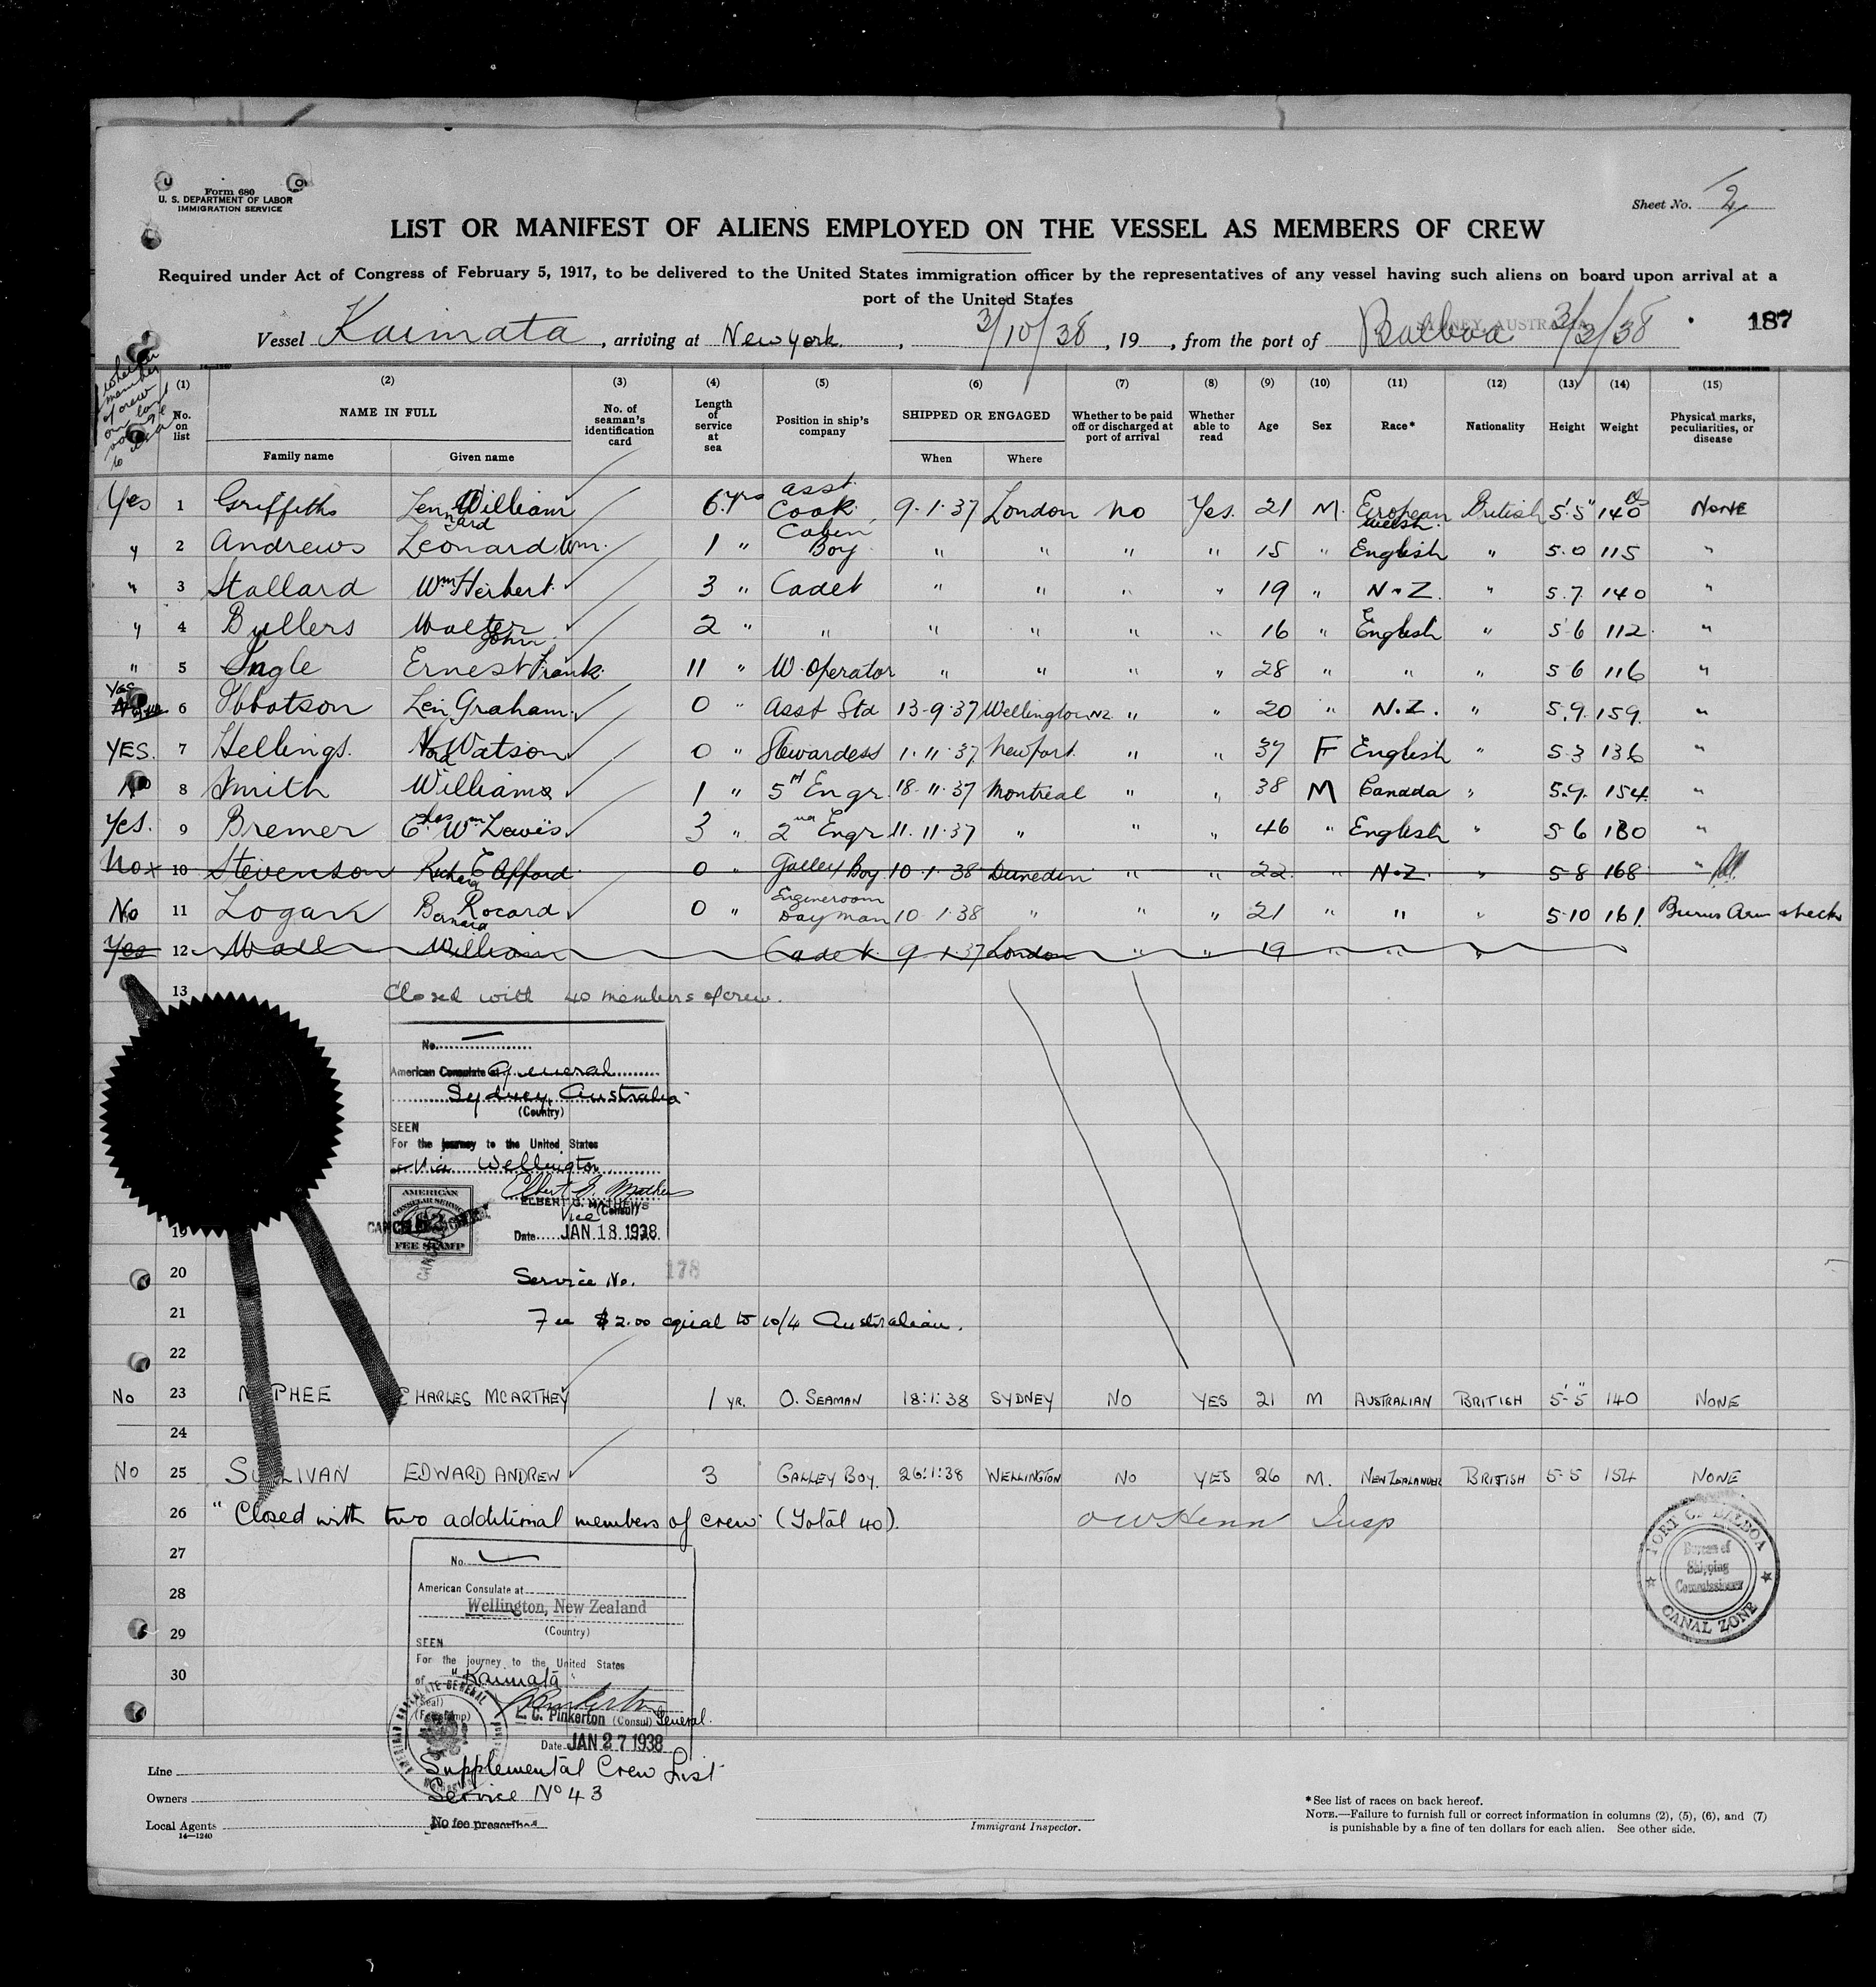 Form 680
U. S. DEPARTMENT OF LABOR
IMMIGRATION SERVICE
Sheet No. 2
LIST OR MANIFEST OF ALIENS EMPLOYED ON THE VESSEL AS MEMBERS OF CREW
Required under Act of Congress of February 5, 1917, to be delivered to the United States immigration officer by the representatives of any vessel having such aliens on board upon arrival at a
port of the United States
Vessel Kaimata, arriving at New York, 3/10/38, 19 , from the port of Balboa 3/2/38 187
SYDNEY, AUSTRALIA
whether member of crew on last voyage to U.S.A.
(1) (2) (3) (4) (5) (6) (7) (8) (9) (10) (11) (12) (13) (14) (15)
No. on list NAME IN FULL No. of seaman's identification card Length of service at sea Position in ship's company SHIPPED OR ENGAGED Whether to be paid off or discharged at port of arrival Whether able to read Age Sex Race* Nationality Height Weight Physical marks, peculiarities, or disease
Family name Given name When Where
Yes 1 Griffiths Lennard William 6 yrs asst. Cook 9.1.37 London no Yes. 21 M. European Welsh British 5'5" 140 lbs NONE
" 2 Andrews Leonard Wm. 1 " Cabin Boy " " " " 15 " English " 5.0 115 "
" 3 Stallard Wm Herbert 3 " Cadet " " " " 19 " N.Z. " 5.7 140 "
" 4 Bullers Walter John 2 " " " " " " 16 " English " 5 6 112 "
" 5 Ingle Ernest Frank 11 " W. Operator " " " " 28 " " " 5 6 116 "
Yes 6 Ibbotson Len Graham 0 " Asst Std 13.9.37 Wellington NZ " " 20 " N.Z. " 5.9. 159. "
YES. 7 Hellings Nora Watson 0 " Stewardess 1.11.37 Newport " " 37 F English " 5.3 136 "
No 8 Smith William 1 " 5th Engr 18.11.37 Montreal " " 38 M Canada " 5.9. 154 "
Yes. 9 Bremer Chas Wm Lewis 3 " 2nd Engr 11.11.37 " " " 46 " English " 5 6 180 "
No x 10 Stevenson Richard Clifford 0 Galley Boy 10.1.38 Dunedin " " 22 " N.Z. " 5-8 168 "
No 11 Logan Bernard Rocard 0 " Engineroom Day man 10.1.38 " " " 21 " " " 5-10 161 Burns Arm & neck
Yes 12 Wall William Cadet 9.1.37 London " " 19 " " "
13 Closed with 40 members of crew.
No.
American Consulate General
Sydney, Australia
(Country)
SEEN
For the journey to the United States
via Wellington
Elbert G. Mathews
ELBERT G. MATHEWS
Vice (Consul)
Date JAN 18 1938
AMERICAN
CONSULAR SERVICE
FEE STAMP
19
20 Service No. 178
21 Fee $2.00 equal to 10/4 Australian.
22
No 23 McPHEE CHARLES MCARTHEY 1 YR. O. SEAMAN 18:1:38 SYDNEY NO YES 21 M AUSTRALIAN BRITISH 5'-5" 140 NONE
24
No 25 SULLIVAN EDWARD ANDREW 3 GALLEY BOY. 26:1:38 WELLINGTON NO YES 26 M. NEW ZEALANDER BRITISH 5-5 154 NONE
26 "Closed with two additional members of crew (Total 40). O W Henn Insp
27
28
29
30
No.
American Consulate at
Wellington, New Zealand
(Country)
SEEN
For the journey to the United States
of "Kaimata"
(Seal)
(Fee stamp)
E. C. Pinkerton (Consul) General.
Date JAN 27 1938
AMERICAN CONSULATE GENERAL
Supplemental Crew List
Service No 43
No fee prescribed
PORT C. BALBOA
Bureau of
Shipping
Commissioner
CANAL ZONE
Line
Owners
Local Agents
14—1240
Immigrant Inspector.
*See list of races on back hereof.
NOTE.—Failure to furnish full or correct information in columns (2), (5), (6), and (7)
is punishable by a fine of ten dollars for each alien. See other side.